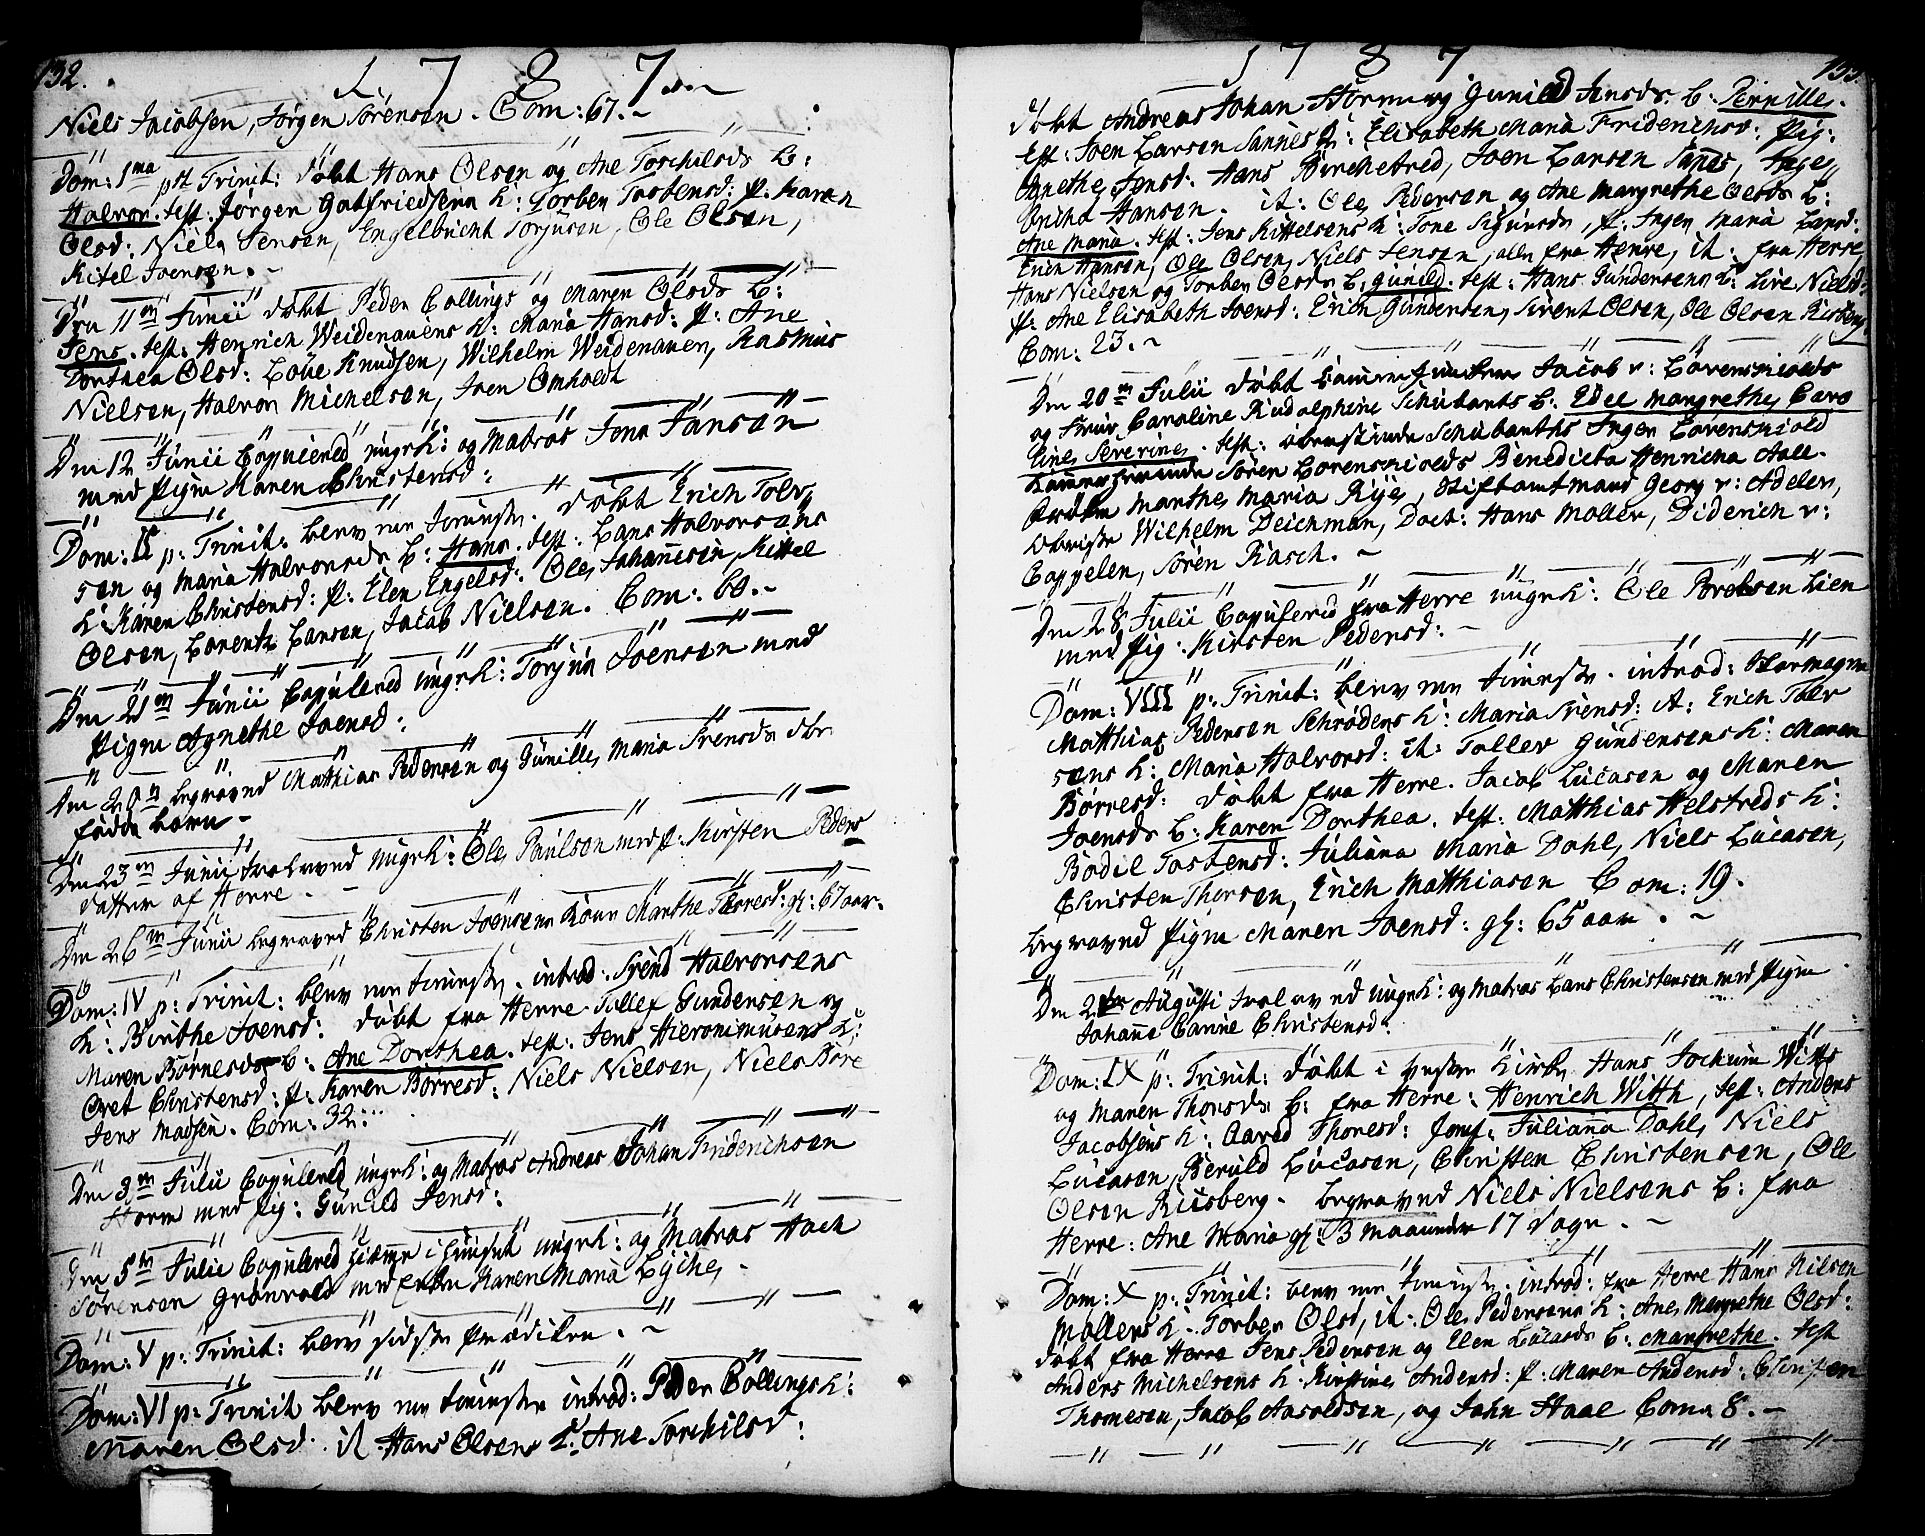 132.
1787
Niels Jacobsen, Jørgen Sørensen. Com: 67.
Dom: 1ma pst Trinit: døbt Hans Olsen og Ane Torchilsds b:
Halvor. test. Jørgen Gotfriedsens k: Torber Tostensd: p. Karen
Olsd: Niels Jensen, Engelbricht Torjusen, Ole Olsen,
Kitel Joensen.
Den 11te Junii døbt Peder Collings og Maren Olsds b:
Jens. test: Henrich Weidenauers k: Maria Hansd: p: Ane
Dorthea Olsd: Løve Knudsen, Wilhelm Weidenauer, Rasmus
Nielsen, Halvor Michelsen, Joen Omholdt
Den 12 Junii Copulered ungk: og Matros Jens Jansen
med Pigen Karen Christensd:
Dom: II p: Trinit: blev ney tieniste. døbt Erich Tolv
sen og Maria Halvorsds b: Hans. test: Lars Halvorsens
k: Karen Christensd: p: Elen Engelsd: Ole Johannesen, Kittel
Olsen, Lorentz Larsen, Jacob Nielsen. Com: 60.
Den 21de Junii Copulered ungk: Torjus Joensen med
Pigen Agnethe Joensd:
Den begraved Matthias Pedersen og Gunille Maria Svensds
fødde barn
Den 23de Junii trolovned ungk: Ole Paulson med p: Kirsten Peders
datter af Herre.
Den 26de Junii begraved Christen Joensens Kone Marthe Torresd: gl: 67 aar.
Dom: IV p: Trinit: blev tieniste. introd: Svend Halvorsens
k: Birthe Joensd: døbt fra Herre Tollef Gundersen og
Maren Børresds b: Ane Dorthea. test: Jens Hieronimusens k:
Gret Christensd: p: Karen Børresd: Niels Nielsen, Niels Bore
Jens Madsen. Com: 32.
Den 3de Julii Copulered ungk: og Matros Andreas Johan Friderichsen
Storm med Pig: Gunild Jensd:
Den 5te Julii Copulered hieme i huuset ungk: og Matros Hach
Sørensen Grønvold med Karen Maria Lyche
Dom: V p: Trinit: blev sidste Prædiken.
Dom: VI p: Trinit blev tieniste introd: Peder Collings k:
Maren Olsd. it Hans Olsens k: Ane Torchilsd:
133
1787
døbt Andreas Johan Storm og Gunild Jensds. b. Pernille.
test: Joen Larsen Sannes k: Elisabeth Maria Friderichsd: Pig:
Anethe Jensd: Hans Birchetred, Joen Larsen Sanes,
bricht Hansen. it: Ole Pedersen og Ane Margrethe Olsds b:
Ane Maria. test: Jens Kittelsens k: Tone Sigursds, p: Inger Maria Larsd:
Erich Hansen, Ole Olsen, Niels Jensen, alle fra Herre, it: fra Herre
Hans Nielsen og Torber Olsds b. Gunild. test: Hans Gundersens k: Live Nielsd:
p: Ane Elisabeth Joensd: Erich Gundersen, Sivert Olsen, Ole Olsen Risberg.
Com: 23.
Den 20de Julii døbt Jacob v: Løvenskiolds
og Frue Caroline Rudolphine Schubarts b. Edel Margrethe Caro
line Severine. test: Schubarths Inger Løvenskiold
Søren Lovenskiolds Benedicta Henricha Aall.
Frøken Marthe Maria Rije, Stiftamtmand Georg v: Adeler,
Wilhelm Deichman, Doct: Hans Moller, Diderich v:
Cappelen, Søren Rasch.
Den 28 Julii Copulered fra Herre ungk: Ole Povelsen Lien
med Pig: Kirsten Pedersd:
Dom: VIII p: Trinit: blev tieniste. introd:
Matthias Pedersen Schrøders k: Maria Svensd: it: Erich Tolv
sens k: Maria Halvorsd: it: Tollev Gundersens k: Maren
Børresd: døbt fra Herre. Jacob Lucasen og Maren
Joensds b: Karen Dorthea. test: Matthias Helstreds k:
Bodil Tostensd: Juliana Maria Dahl, Niels Lucasen,
Christen Thorsen, Erich Matthiasen Com: 19.
begraved Pigen Maren Joensd: gl: 65 aar.
Den Augusti trolovned ungk: og Matros Lars Christensen med Pigen
Johanne Carine Christensd:
Dom: IX p: Trinit: døbt i vestre Kirke Hans Jochum Witts
og Maren Thorsds b: fra Herre: Henrich Witth, test: Anders
Jacobsens k: Aarod Thoresd: Jomf: Juliana Dahl, Niels
Lucasen, Beruld Lucasen, Christen Christensen, Ole
Olsen Riisberg. begraved Niels Nielsens b: fra
Herre: Ane Maria gl: 3 maaneder 17 dage.
Dom: X p: Trinit: blev tieniste. introd: fra Herre Hans Nilsen
Møllers k. Torber Olsd, it. Ole Pedersens k: Ane Margrethe Olsd:
døbt fra Herre Jens Pedersen og Elen Lucasds b: Margrethe. test
Anders Michelsens k. Kirstine Andersd: p: Maren Andersd: Christen
Thomesen, Jacob Aaroldsen, og John Haae Com: 8.